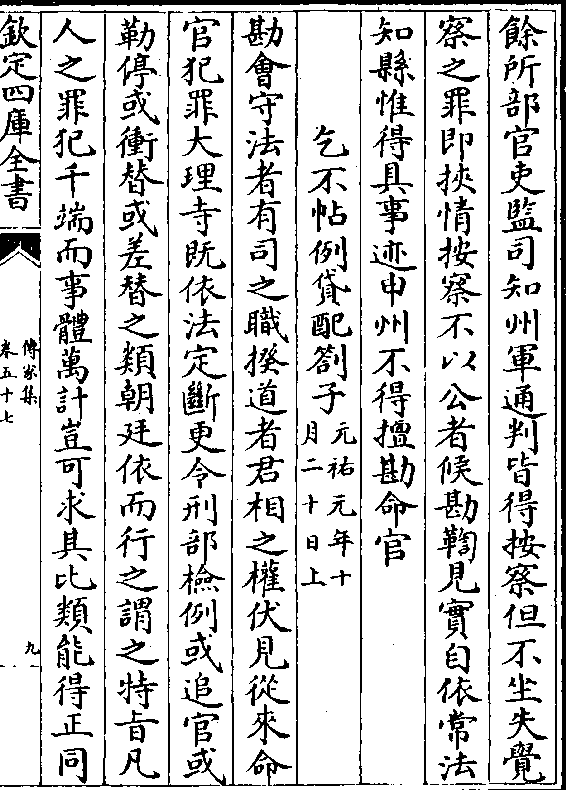 餘所部官吏監司知州軍通判皆得按察但不坐失覺
察之罪即挾情按察不以公者候勘鞫見實自依常法
知縣惟得具事迹申州不得擅勘命官
乞不帖例貸配劄子元祐元年十
月二十日上
勘會守法者有司之職揆道者君相之權伏見從來命
官犯罪大理寺既依法定斷更令刑部檢例或追官或
勒停或衝替或差替之類朝廷依而行之謂之特旨凡
人之罪犯千端而事體萬計豈可求其比類能得正同
欽定四庫全書
傳家集
卷五十七
九